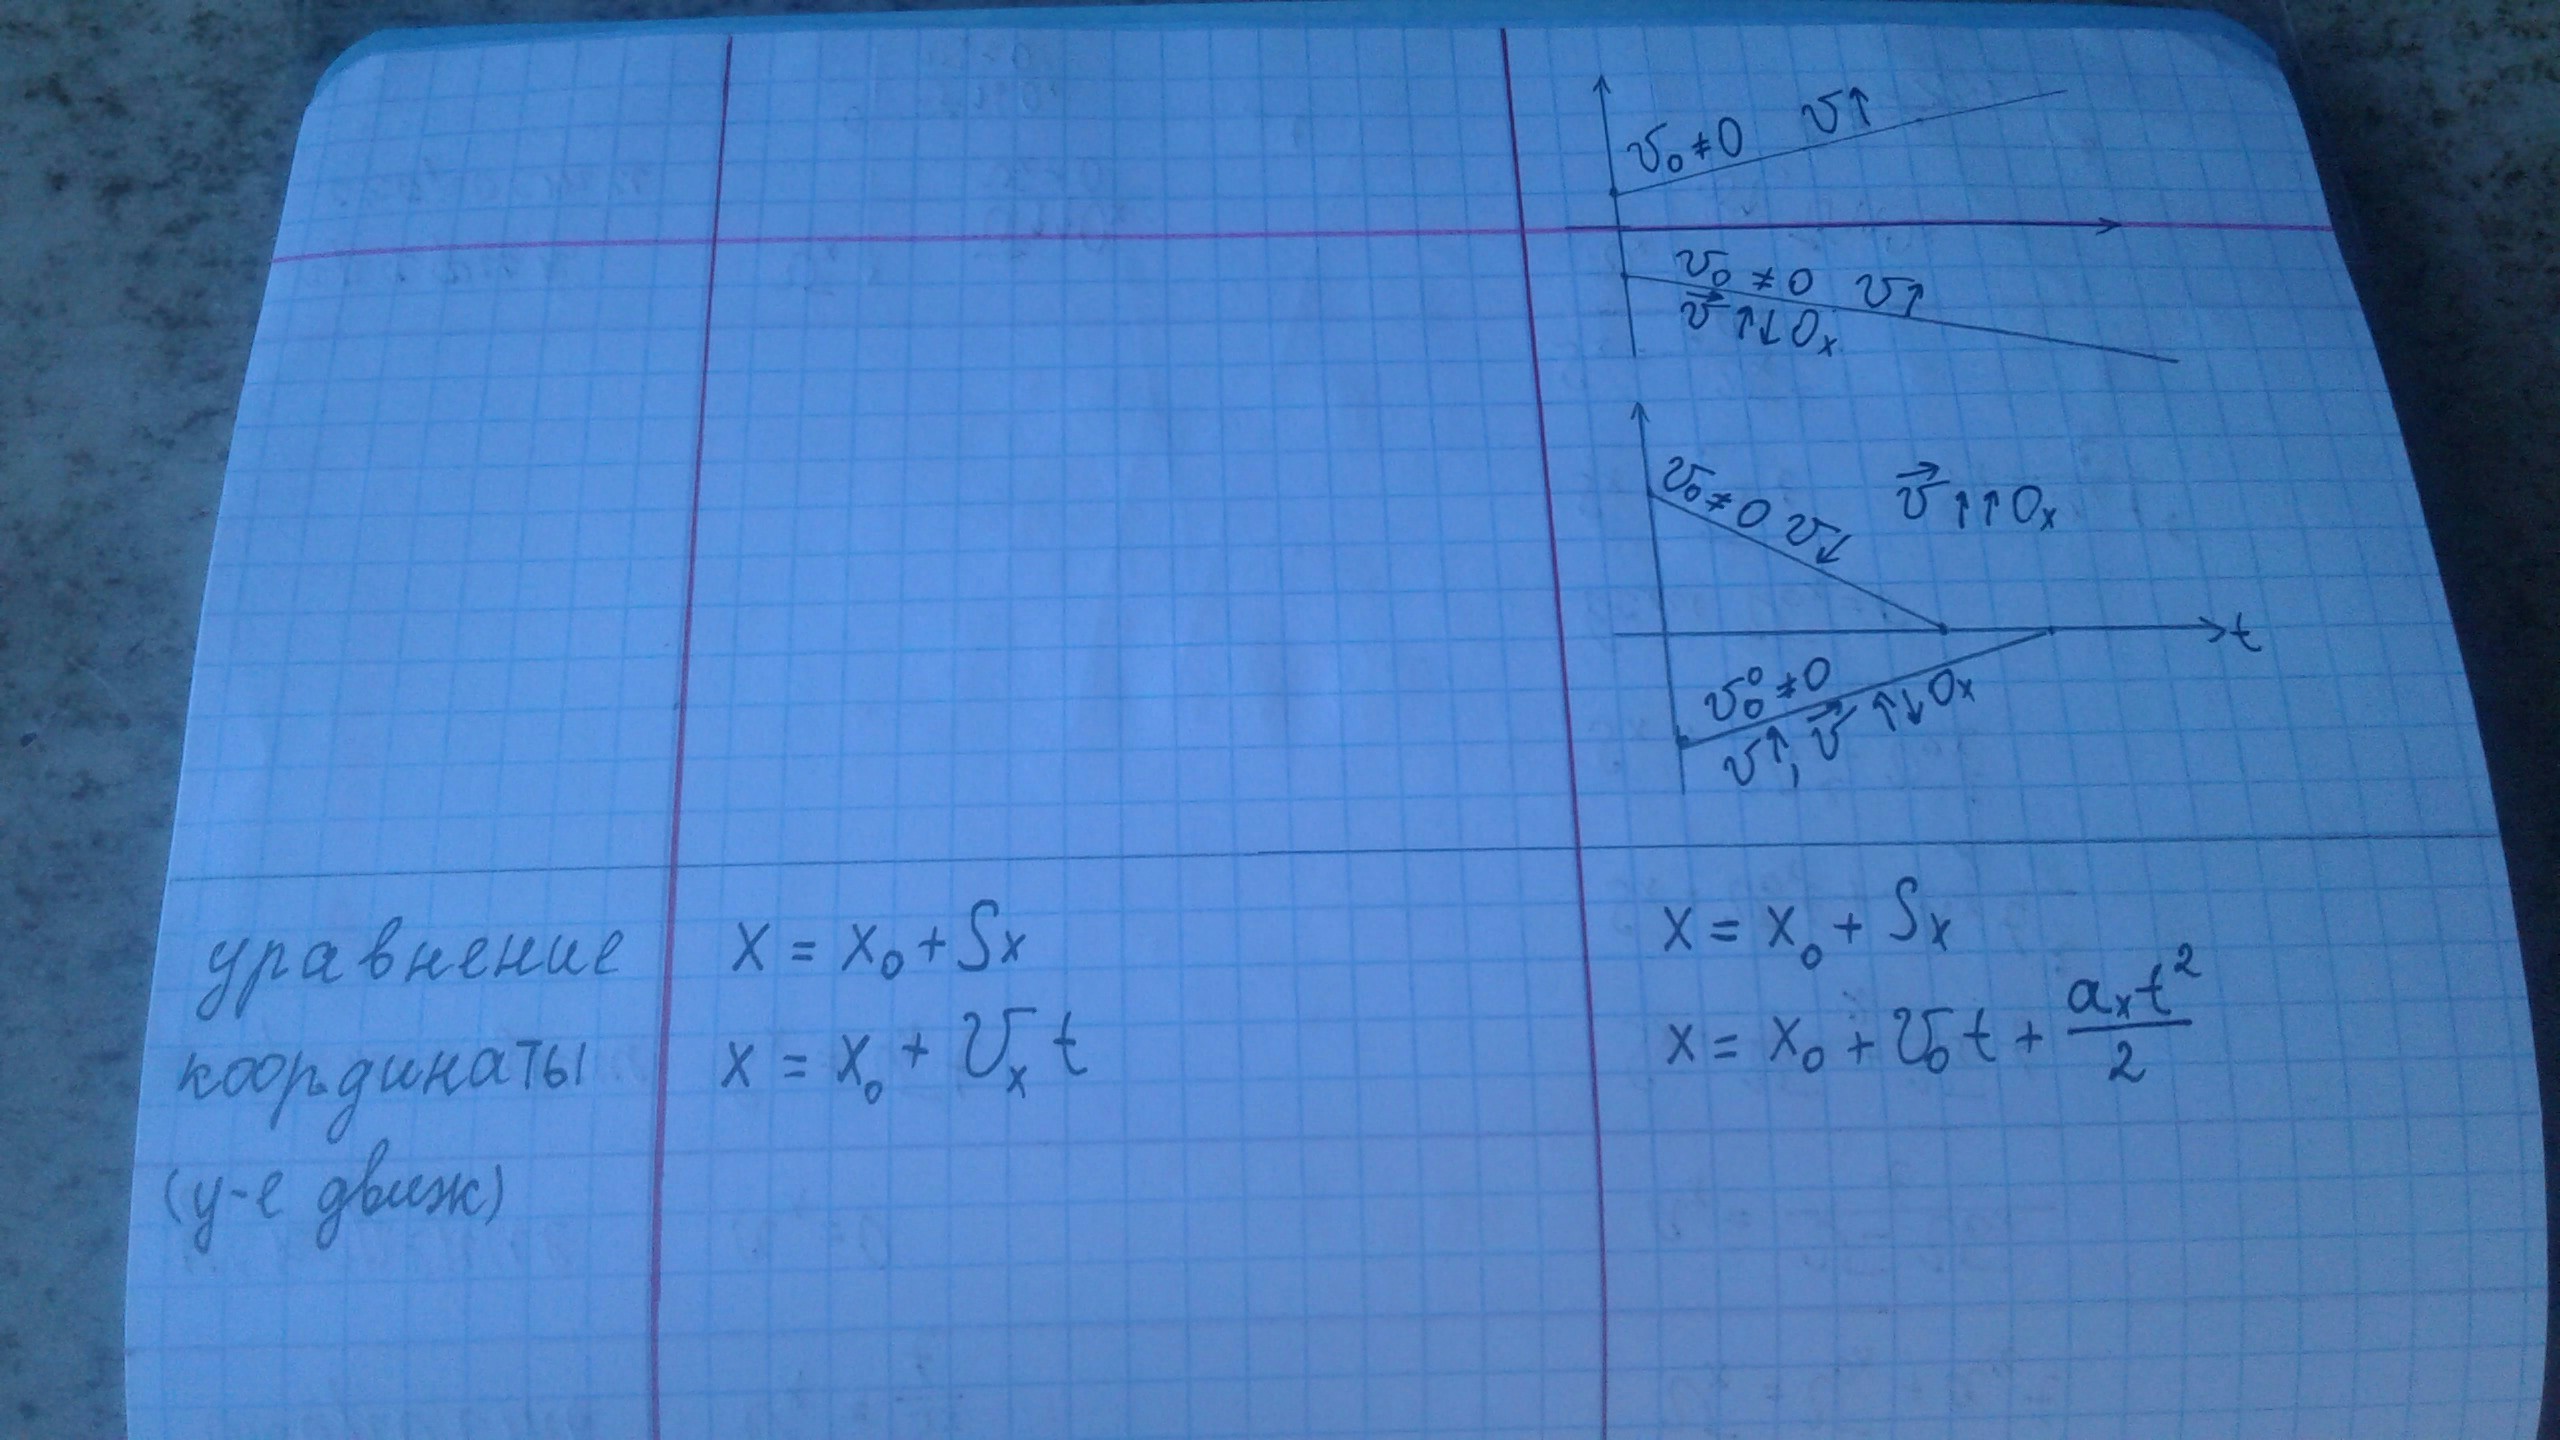 v₀ ≠ 0 v↑
v₀ ≠ 0 v↑
v⃗ ↑↓ Oₓ
v₀ ≠ 0 v↓ v⃗ ↑↑ Oₓ
t
v₀⁰ ≠ 0
v↑, v⃗ ↑↓ Oₓ
уравнение
координаты
(у-е движ)
x = x₀ + Sx
x = x₀ + vₓ t
x = x₀ + Sx
x = x₀ + v₀ t + aₓt²/2